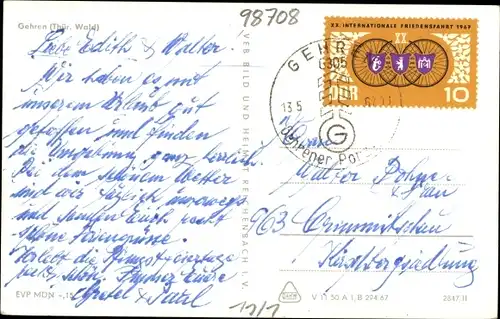 Gehren (Thür. Wald)
98708
Liebe Edith & Walter.
Wir haben es mit
unserem Urlaub gut
getroffen und finden
die Umgebung ganz herrlich.
Bei dem schönem Wetter
sind wir täglich unterwegs
und senden Euch recht
schöne Feriengrüße.
Verlebt die Pfingstfeiertage
recht schön. Eure
Gretel & Karl
EVP MDN -,1
VEB BILD UND HEIMAT REICHENBACH I. V.
XX. INTERNATIONALE FRIEDENSFAHRT 1967
XX
DDR
10
GEHREN
6305
13.5
G
Gehrener Por
Walter
& Frau
963 Crimmitschau
Kirschbergsiedlung
V 11 50 A 1, B 294.67
2847 II